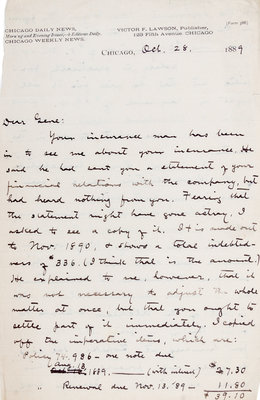 CHICAGO DAILY NEWS,
Morning and Evening Issues—6 Editions Daily.
CHICAGO WEEKLY NEWS.
VICTOR F. LAWSON, Publisher,
123 Fifth Avenue, CHICAGO
CHICAGO, Oct. 28, 1889
Dear Gene:
Your insurance man has been
in to see me about your insurance. He
said he had sent you a statement of your
financial relations with the company, but
had heard nothing from you. Fearing that
the statement might have gone astray, I
asked to see a copy of it. It is made out
to Nov. 1890, & shows a total indebted-
ness of $336. (I think that is the amount.)
He explained to me, however, that it
was not necessary to adjust the whole
matter at once, but that you ought to
settle part of it immediately. I copied
off the imperative items, which are:
Policy 74.986 – one note due
Aug. 13
1889, — (with interest) $27.30
" Renewal due Nov. 13. '89 — 11.80
$39.10